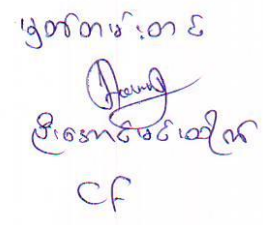 မှတ်တမ်းတင်
ဦးအောင်မင်းထိုက်
CF